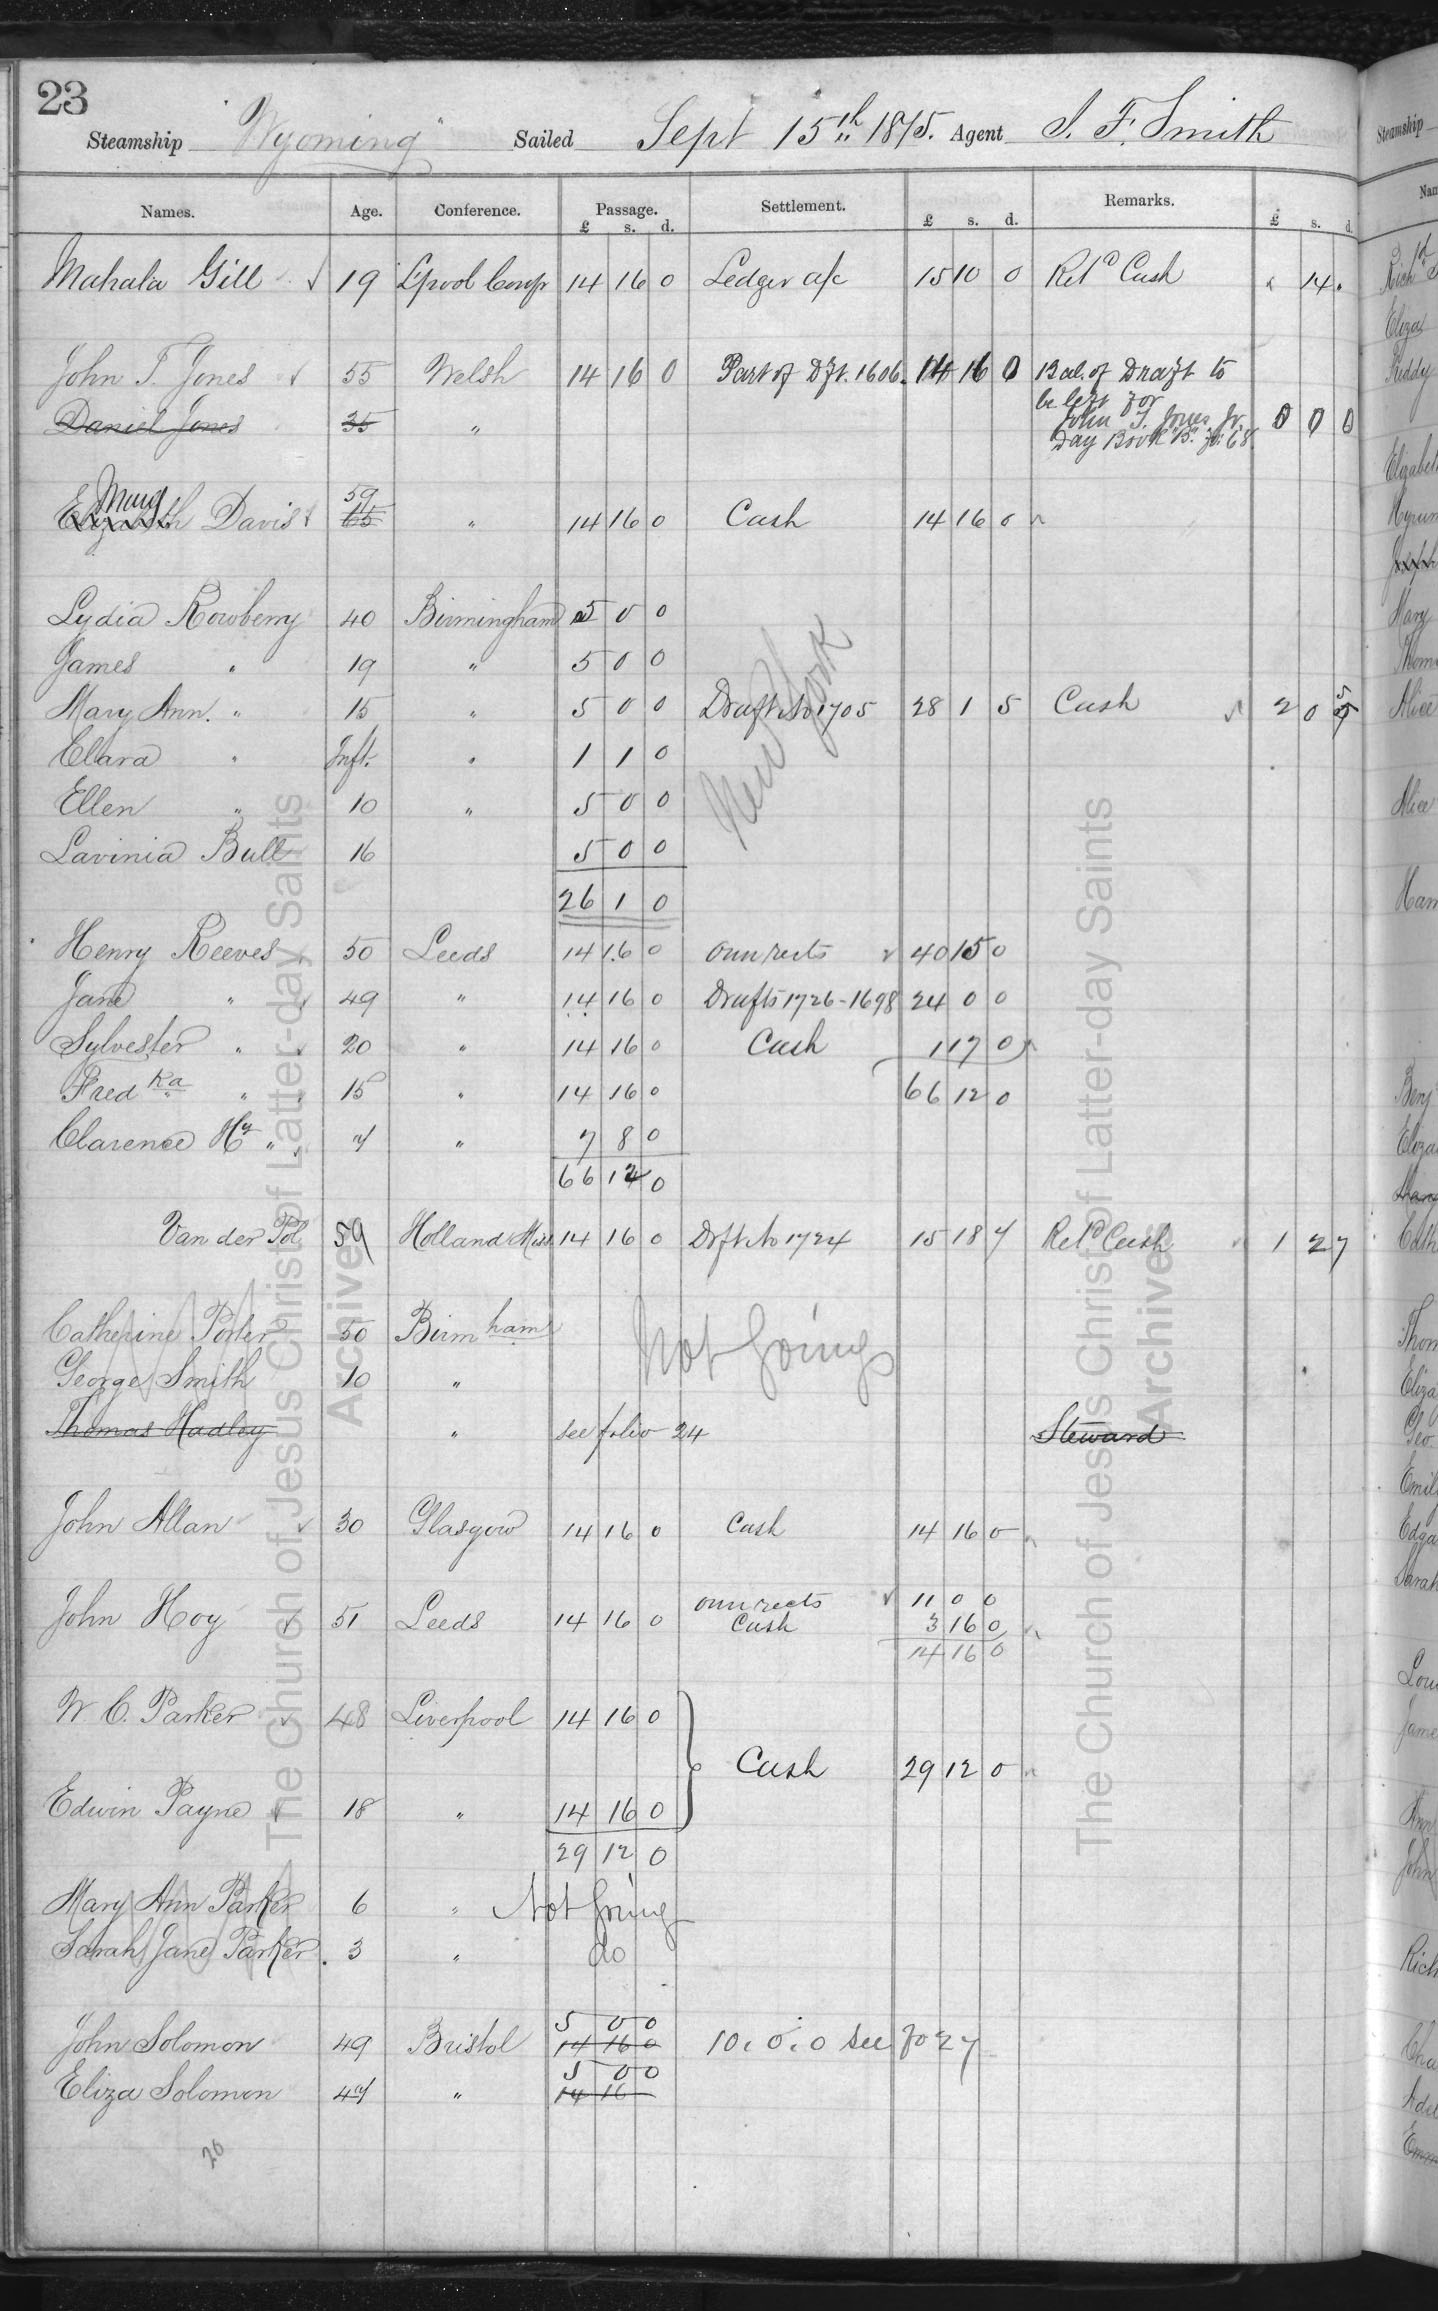 23
Steamship "Wyoming" Sailed Sept 15th 1875. Agent J. F. Smith
Names. Age. Conference. Passage. Settlement. Remarks.
£ s. d. £ s. d. £ s. d.
Mahala Gill 19 L'pool Conf 14 16 0 Ledger a/c 15 10 0 Retd Cash 14 .
John T. Jones 55 Welsh 14 16 0 Part of Dft. 1606. 14 16 0 Bal. of Draft to
be left for
Daniel Jones 35 " John T. Jones Jr. 0 0 0
Day Book "B" fo. 68.
Marg 59
Elizabeth Davis 65 " 14 16 0 Cash 14 16 0
Lydia Rowberry 40 Birmingham 5 0 0
James " 19 " 5 0 0
Mary Ann. " 15 " 5 0 0 Draft No 1705 28 1 5 Cash 2 0 5
New York
Clara " Inft. " 1 1 0
Ellen " 10 " 5 0 0
Lavinia Bull 16 5 0 0
26 1 0
Henry Reeves 50 Leeds 14 16 0 own rects 40 15 0
Jane " 49 " 14 16 0 Drafts 1726-1698 24 0 0
Sylvester " 20 " 14 16 0 Cash 1 17 0
Fred ka " 15 " 14 16 0 66 12 0
Clarence Hy " 7 " 7 8 0
66 12 0
Van der Pol 59 Holland Miss 14 16 0 Dft No 1724 15 18 7 Retd Cash 1 2 7
Catherine Porter 50 Birmham Not Going
George Smith 10 "
Thomas Hadley " see folio 24 Steward
John Allan 30 Glasgow 14 16 0 Cash 14 16 0
John Hoy 51 Leeds 14 16 0 own rects 11 0 0
Cash 3 16 0
14 16 0
W C. Parker 48 Liverpool 14 16 0
Cash 29 12 0
Edwin Payne 18 " 14 16 0
29 12 0
Mary Ann Parker 6 " Not Going
Sarah Jane Parker. 3 " do
5 0 0
John Solomon 49 Bristol 14 16 0 10. 0. 0 see fo 27
5 0 0
Eliza Solomon 47 " 14 16
20
The Church of Jesus Christ of Latter-day Saints
Archives
The Church of Jesus Christ of Latter-day Saints
Archives
Steamship
Eliza
Reddy
Mary
Alice
Alice